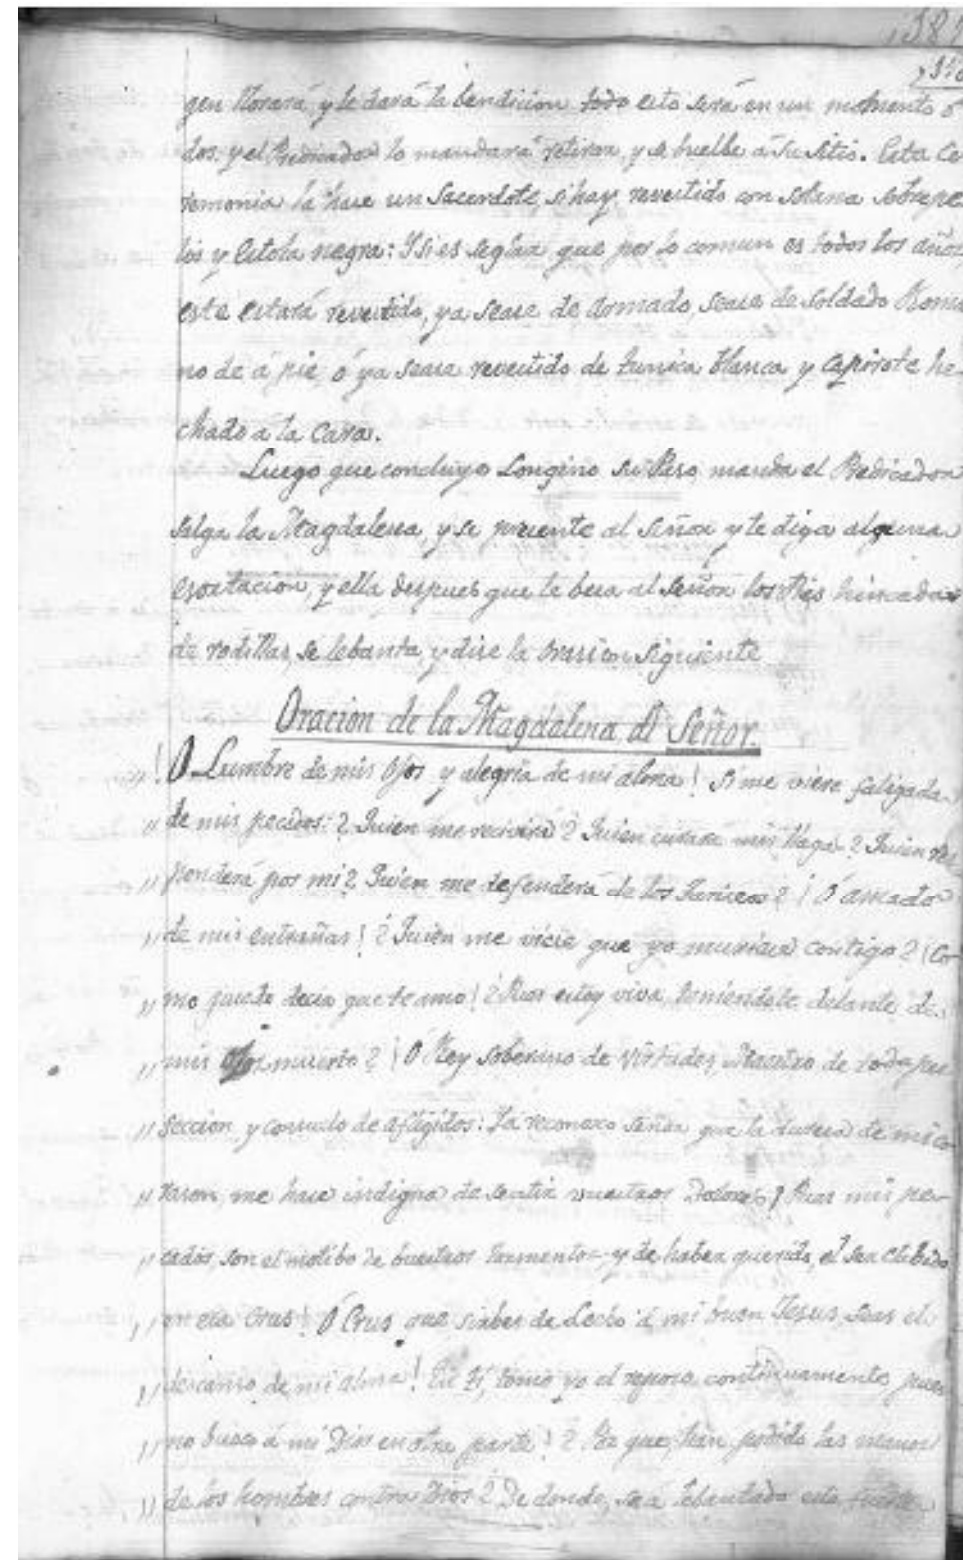 gen llorará, y le dará la bendicion, todo esto será en un momento ó
dos: y el Predicador lo mandará retirar, y se buelbe á su sitio. Esta Ce
remonia la hace un Sacerdote, si hay, revestido con sotana sobrepe
lis y Estola negra: Y si es seglar, que por lo comun es todos los años,
éste estará revestido, ya sease de Armado, sease de Soldado Roma
no de á pie, ó ya sease revestido de tunica blanca y capirote he-
chado á la Cara.
Luego que concluye Longino su Paso, manda el Predicador
salga la Magdalena, y se presente al Señor y le diga alguna
exortacion, y ella despues que le besa al Señor los Pies hincada
de rodillas, se lebanta, y dise la orasion siguiente
Oracion de la Magdalena al Señor.
¡O Lumbre de mis Ojos y alegria de mi alma! Si me viere fatigada
„ de mis pecados: ? Quien me recivirá? Quien curara mis llagas? Quien res
„ ponderá por mi? Quien me defenderá de los Fariceos? ¡O amado
„ de mis entrañas! ? Quien me viese que yo muriera contigo? ¡Co-
„ mo puedo decir que te amo! ? Pues estoy viva, teniendote delante de
„ mis Ojos muerto? ¡O Rey soberano de virtudes, Maestro de toda per
„ feccion, y consuelo de afligidos: Ya reconosco Señor que la duresa de mi co
„ rason, me hace indigna de sentir vuestros Dolores, Pues mis pe-
„ cados, son el motibo de buestros tormentos y de haber querido, el ser clabado
„ en esa Crus! O Crus que sirbes de Lecho á mi buen Jesus, seas el
„ descanso de mi alma! En ti, tomo yo el reposo, continuamente, pues
„ no busco á mi Dios en otra parte! ? Por que, han podido las manos
„ de los hombres contra Dios? De donde, se á lebantado esta fuerte